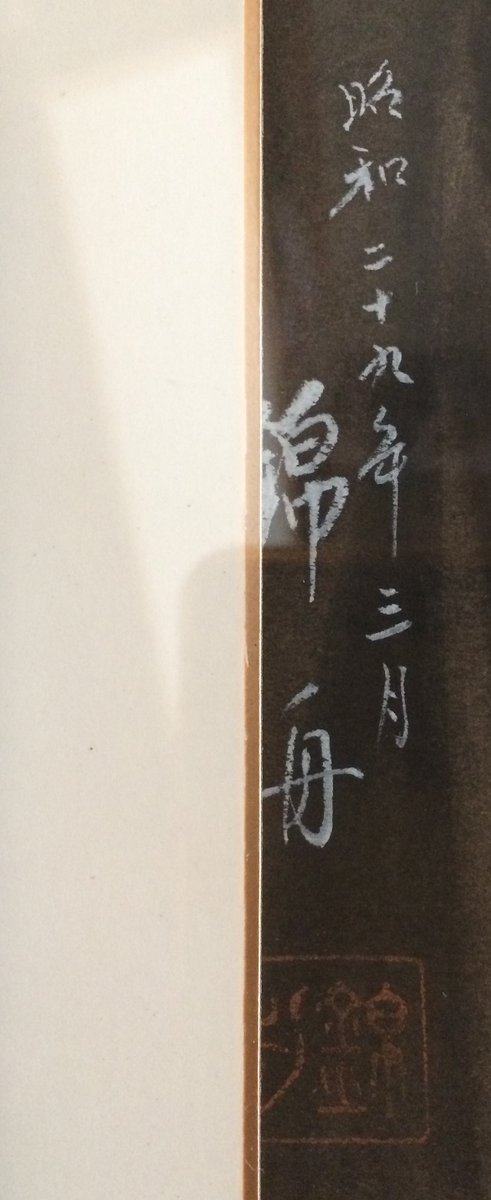 昭和二十九年三月
錦舟
錦